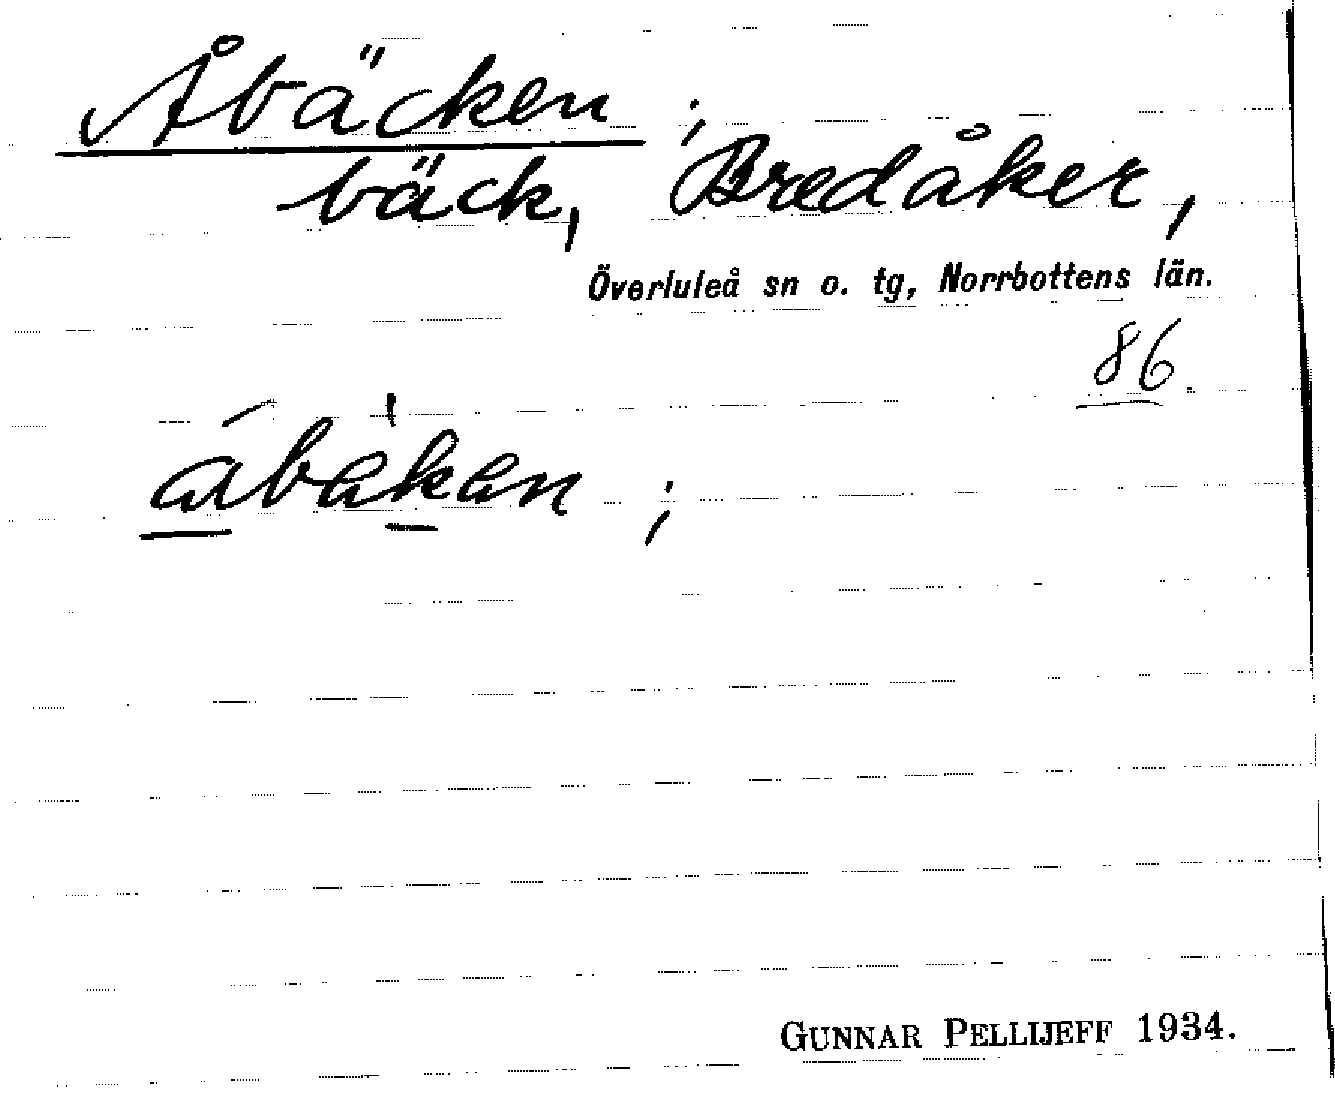 Åbäcken ;
bäck, Bredåker,
Överluleå sn o. tg, Norrbottens län.
86
åbäkən ;
GUNNAR PELLIJEFF 1934.